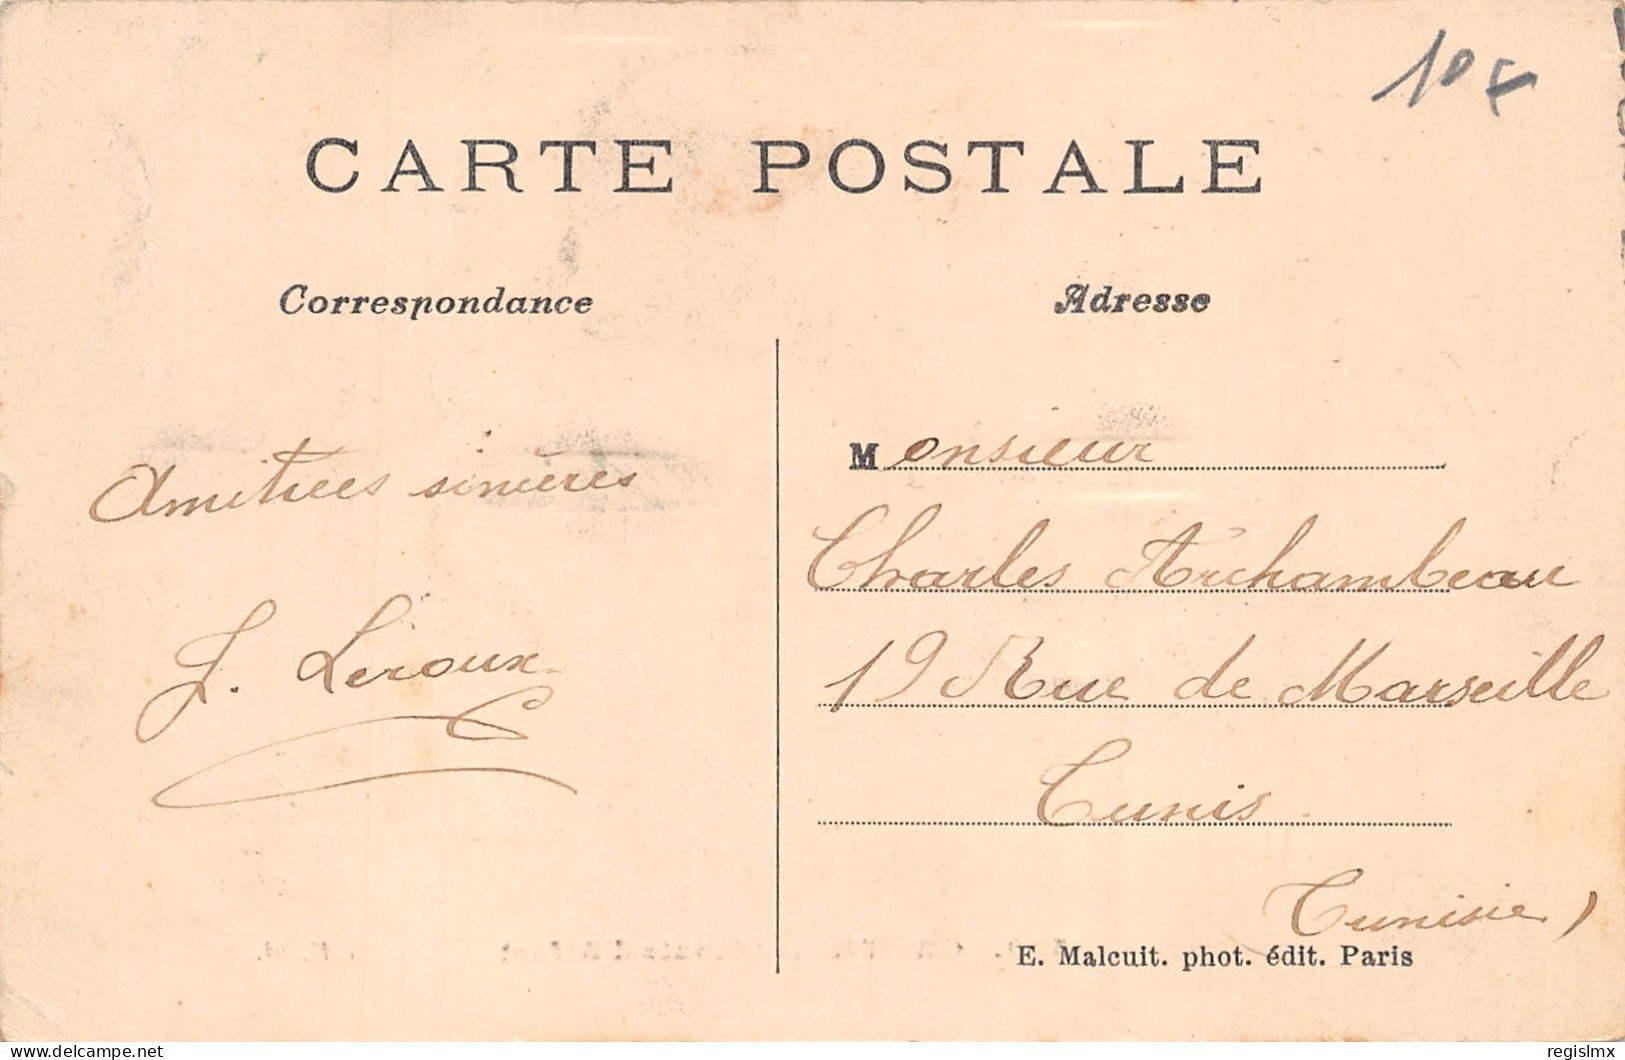 CARTE POSTALE
Correspondance
Adresse
Amitiées sincères
J. Leroux
Monsieur
Charles Archambeau
19 Rue de Marseille
Tunis
Tunisie)
E. Malcuit. phot. édit. Paris
delcampe.net
regislmx